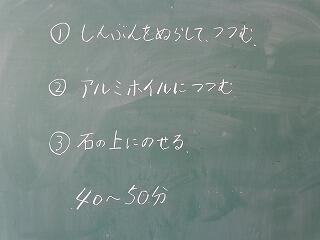 ① しんぶんをぬらして、つつむ。
② アルミホイルにつつむ
③ 石の上にのせる
40～50分